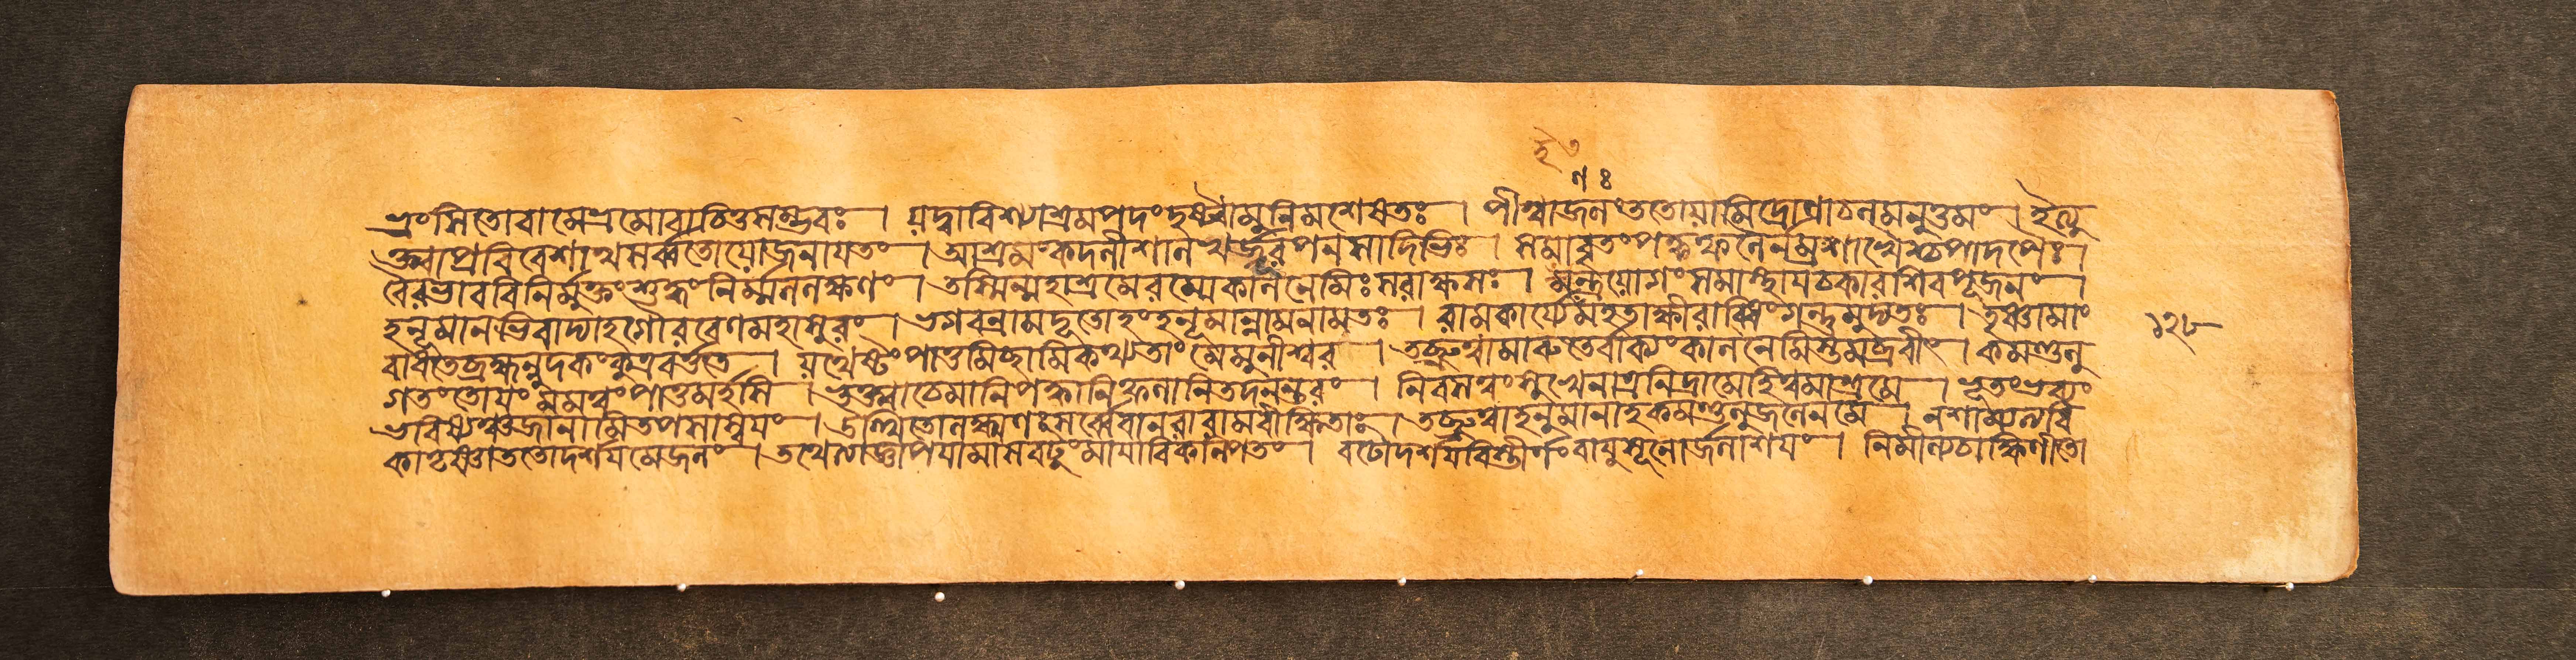 ভ্রংসিতোবামেভ্রমোবাচিত্তসম্ভবঃ । য়দ্বাবিশ্যাশ্রমপদংদৃষ্ট্বামুনিমশেষতঃ । পীত্বাজলংততোয়ামিদ্রোণাচলমনুত্তমং । ইত্যু
ক্ত্বাপ্রবিবেশাথসর্ব্বতোয়োজনাযতং । আশ্রমংকদলীশালখর্জ্জূরপনসাদিভিঃ । সমাবৃতংপক্বফলৈর্নম্রশাখৈশ্চপাদপৈঃ।
বৈরভাববিনির্মুক্তংশুদ্ধংনির্ম্মললক্ষণং । তস্মিন্মহাশ্রমেরম্যেকালনেমিঃসরাক্ষসঃ । মন্ত্রয়োগংসমাস্থাযচকারশিবপূজনং ।
হনূমানভিবাদ্যাহগৌরবেণমহাসুরং । ভগবন্রামদূতোহংহনূমান্নামনামতঃ । রামকার্য্যেমহতাক্ষীরাব্ধিংগন্তুমুদ্যতঃ । তৃষামাং
বাধতেব্রহ্মন্নুদকংকুত্রবর্ত্ততে । য়থেষ্টংপাতুমিচ্ছামিকথ্যতাংমেমুনীশ্বর । তচ্ছ্রুত্বামারুতের্বাক্যংকালনেমিস্তমব্রবীৎ । কমণ্ডলু
গতংতোযংমমত্বংপাতুমর্হসি । ভুক্ত্বাচেমানিপক্বানিফলানিতদনন্তরং । নিবসত্বংসুখেনাত্রনিদ্রামেহিত্বমাশ্রমে । ভূতংভব্যং
ভবিষ্যঞ্চজানামিতপসাস্বযং । উত্থিতোলক্ষ্মণঃসর্ব্বেবানরারামবীক্ষিতাঃ । তচ্ছ্রুত্বাহনুমানাহকমণ্ডলুজলেনমে । নশাম্যত্যধি
কাতৃষ্ণাততোদর্শযমেজলং । তথেত্যাজ্ঞাপযামাসবটুংমাযাবিকল্পিতং । বটোদর্শযবিস্তীর্ণংবাযুসূনোর্জলাশযং । নিমীল্যচাক্ষিণীতো